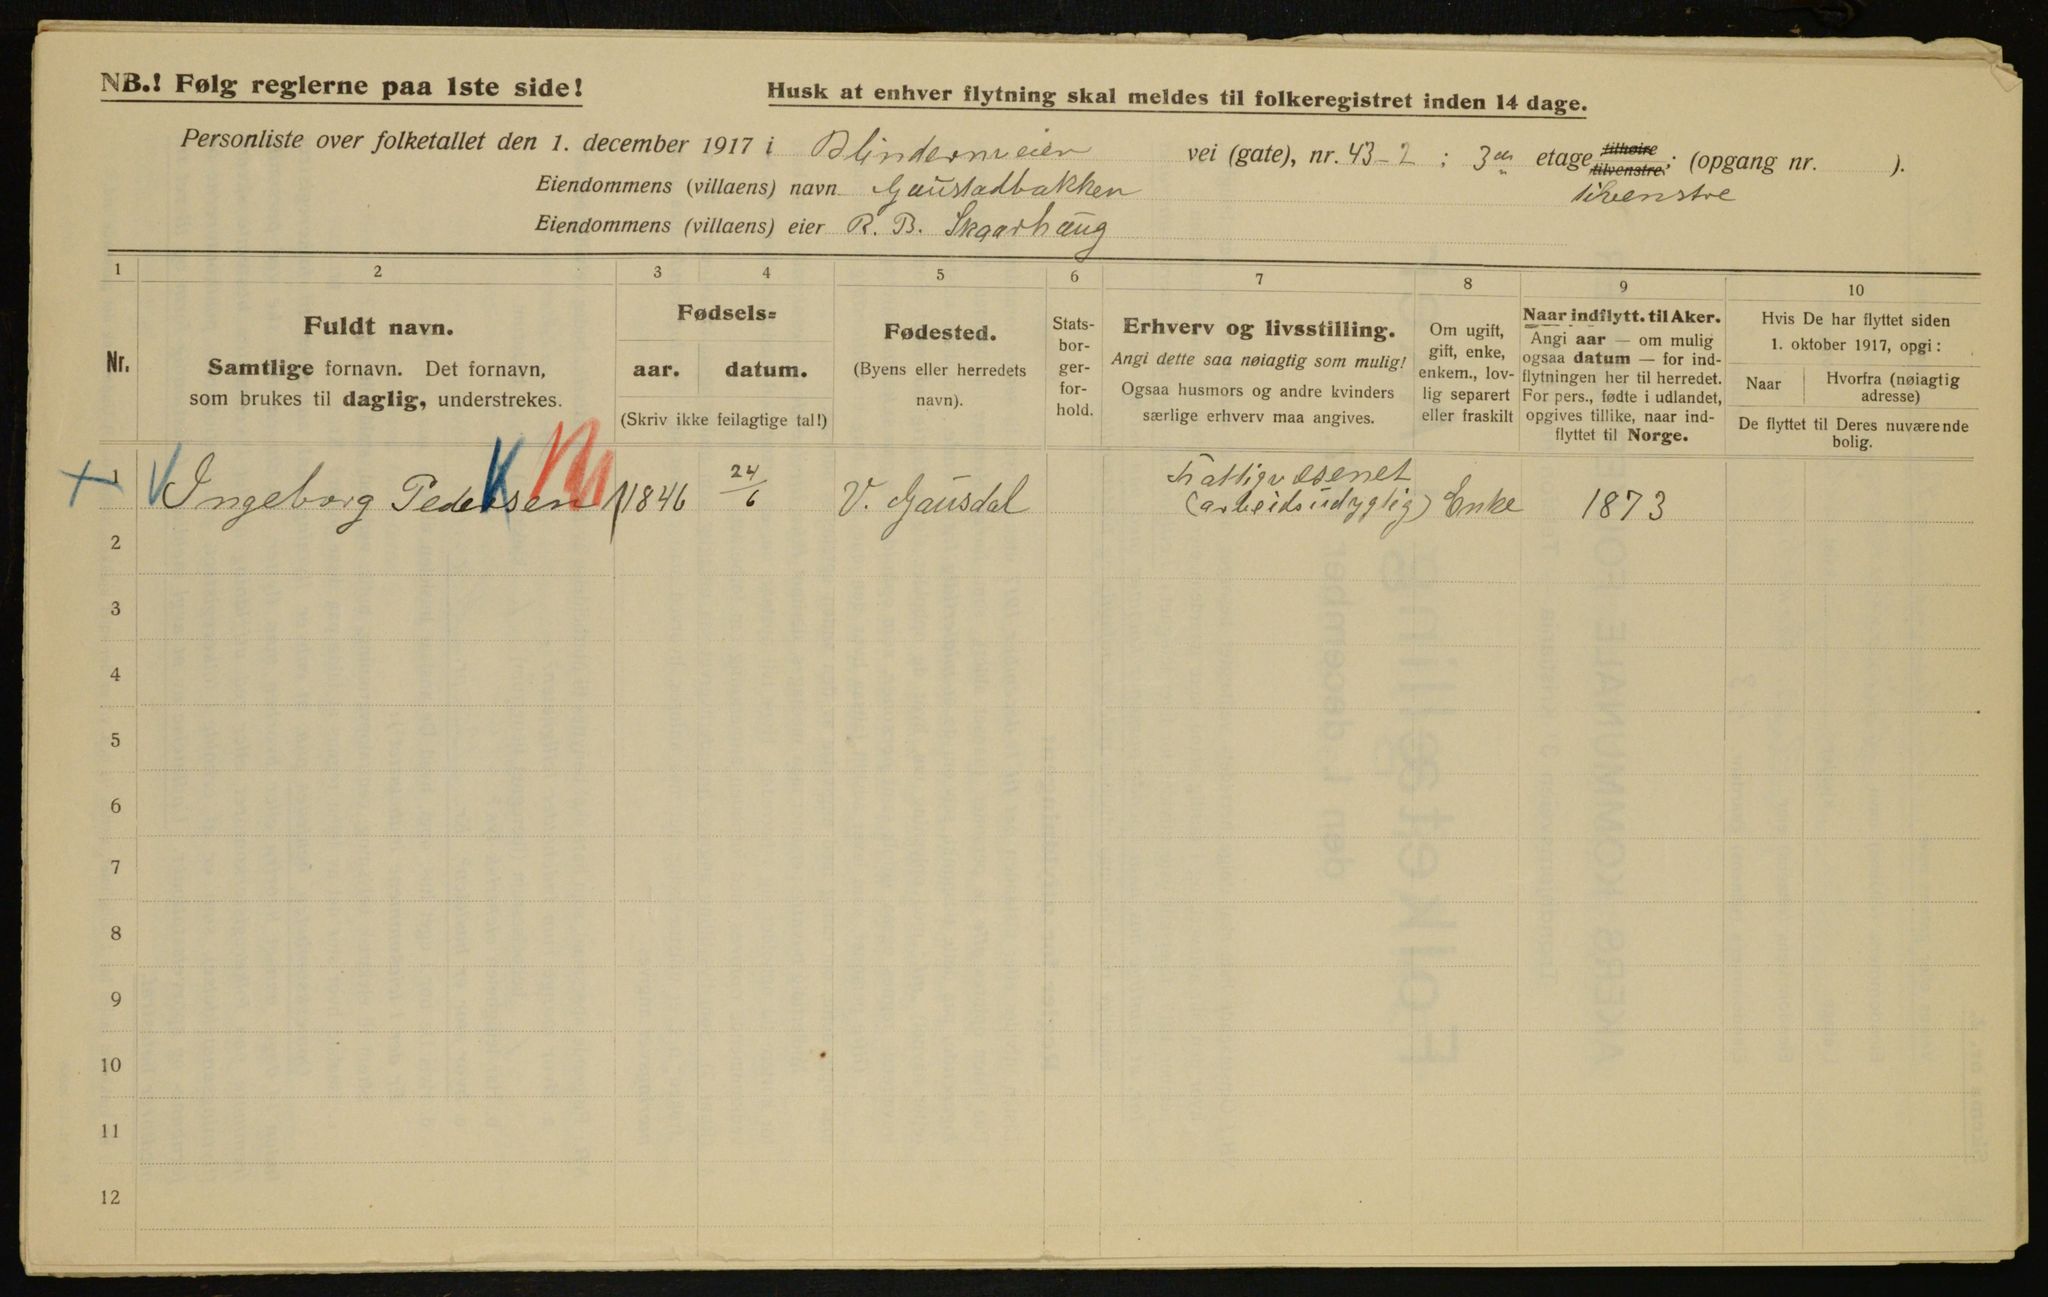 NB.! Følg reglerne paa 1ste side!
Husk at enhver flytning skal meldes til folkeregistret inden 14 dage.
Personliste over folketallet den 1. december 1917 i Blindernveien vei (gate), nr. 43-2 ; 3die etage tilhøire tilvenstre ; (opgang nr. ).
tilvenstre
Eiendommens (villaens) navn Gaustadbakken
Eiendommens (villaens) eier R. B. Skaarhaug
1 2 3 4 5 6 7 8 9 10
Nr.
Fuldt navn.
Samtlige fornavn. Det fornavn,
som brukes til daglig, understrekes.
Fødsels=
aar. datum.
(Skriv ikke feilagtige tal!)
Fødested.
(Byens eller herredets
navn).
Stats-
bor-
ger-
for-
hold.
Erhverv og livsstilling.
Angi dette saa nøiagtig som mulig!
Ogsaa husmors og andre kvinders
særlige erhverv maa angives.
Om ugift,
gift, enke,
enkem., lov-
lig separert
eller fraskilt
Naar indflytt. til Aker.
Angi aar — om mulig
ogsaa datum — for ind-
flytningen her til herredet.
For pers., fødte i udlandet,
opgives tillike, naar ind-
flyttet til Norge.
Hvis De har flyttet siden
1. oktober 1917, opgi:
Naar
Hvorfra (nøiagtig
adresse)
De flyttet til Deres nuværende
bolig.
1 Ingeborg Pedersen K 1846 24/6 V. Gausdal Fattigvæsenet (arbeidsudygtig) Enke 1873
2
3
4
5
6
7
8
9
10
11
12